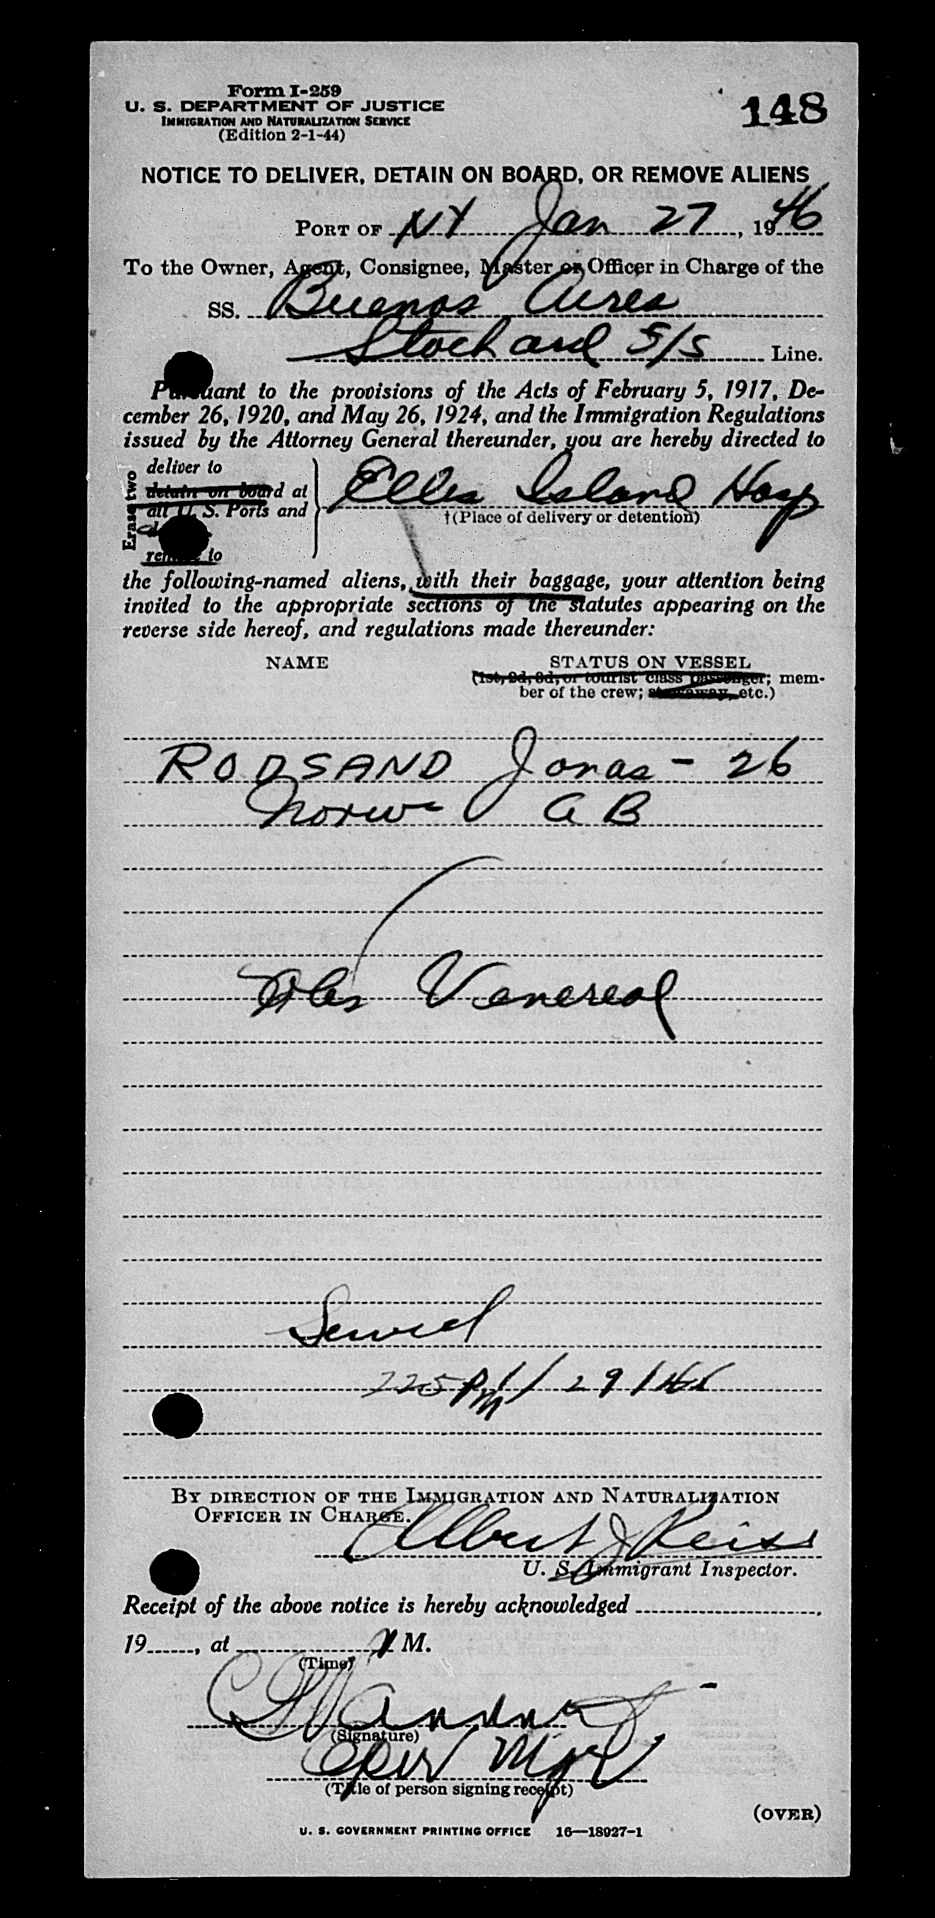 Form I-259
U. S. DEPARTMENT OF JUSTICE
IMMIGRATION AND NATURALIZATION SERVICE
(Edition 2-1-44)
148
NOTICE TO DELIVER, DETAIN ON BOARD, OR REMOVE ALIENS
PORT OF NY Jan 27, 1946
To the Owner, Agent, Consignee, Master or Officer in Charge of the
SS. Buenos Aires
Stockard S/S Line.
Pursuant to the provisions of the Acts of February 5, 1917, De-
cember 26, 1920, and May 26, 1924, and the Immigration Regulations
issued by the Attorney General thereunder, you are hereby directed to
Erase two
deliver to
detain on board at
all U. S. Ports and
remove to
Ellis Island Hosp
†(Place of delivery or detention)
the following-named aliens, with their baggage, your attention being
invited to the appropriate sections of the statutes appearing on the
reverse side hereof, and regulations made thereunder:
NAME STATUS ON VESSEL
(1st, 2d, 3d, or tourist class passenger; mem-
ber of the crew; stowaway, etc.)
RODSAND Jonas - 26
Norw AB
Venereal
Served
225 PM 1/29/46
BY DIRECTION OF THE IMMIGRATION AND NATURALIZATION
OFFICER IN CHARGE.
Albert J Reiss
U. S. Immigrant Inspector.
Receipt of the above notice is hereby acknowledged
19, at M.
(Time)
(Signature)
Oper Mgr
(Title of person signing receipt)
(OVER)
U. S. GOVERNMENT PRINTING OFFICE 16—18927-1